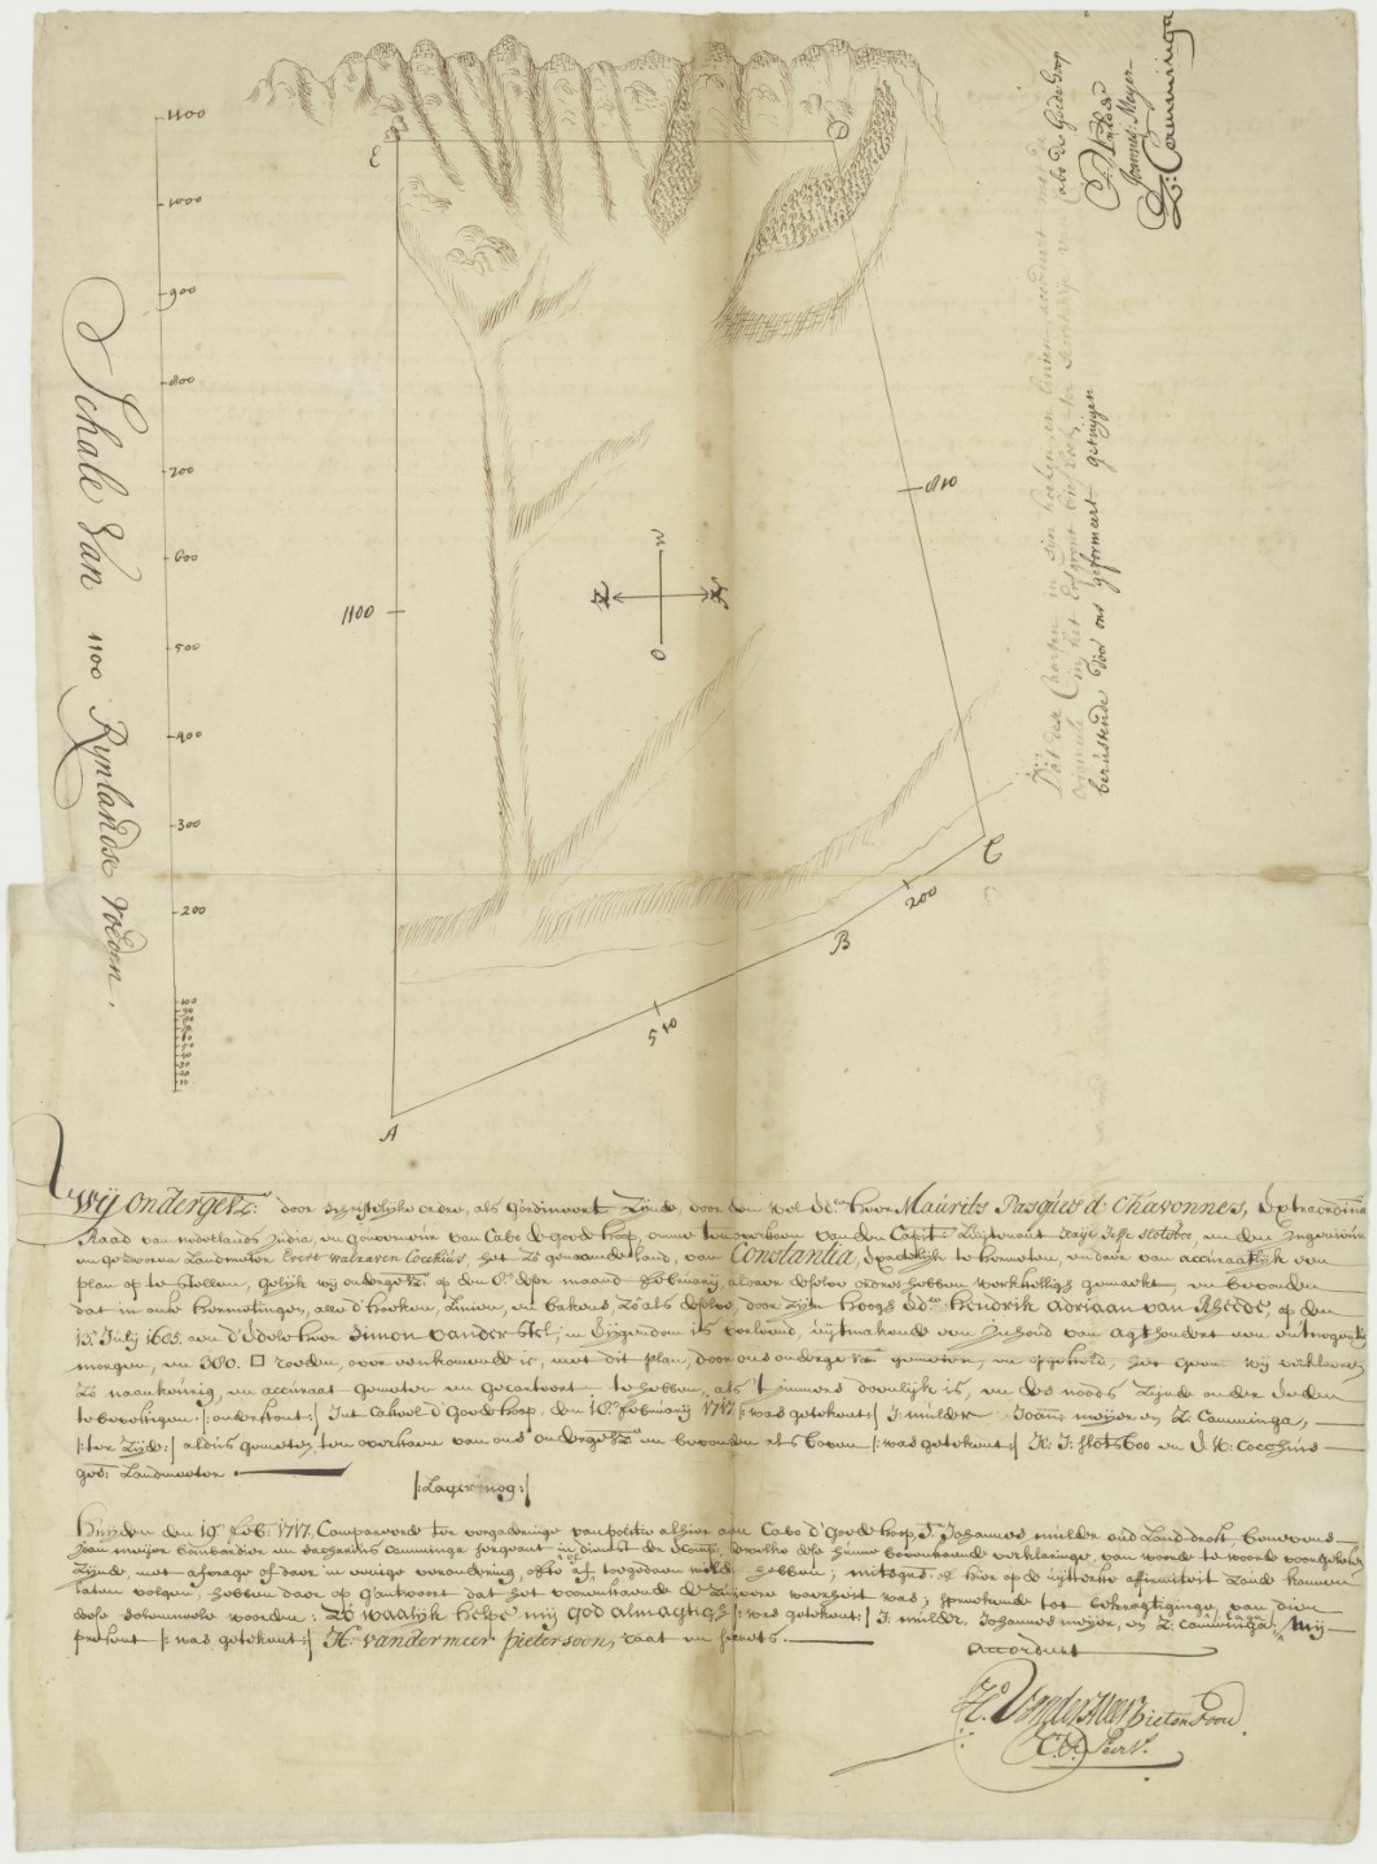 1100
1000
900
800
700
600
500
400
300
200
100
Schale Van 1100 Rynlandse roeden.
E
D
1100
810
W
Z
N
O
C
200
B
510
A
Dat dese Chaerten in sijn hoeken en linien accordeert met de
origineele in het Erfgront brief boek ter Secretarije van Cabo de Goede Hoop
berustende door ons geformeert getuijgen
J: Mulder
Joannes Meyer
Z: Camminga
Wij ondergetz: door schriftelijke ordre, als g'ordineert Zijnde, door den wel Ed:en heer Maurits Pasques d: Chavonnes, Extraordins
Raad van nederlands India, en gouverneur van Cabo de goede hoop, omme ten overstaen van den Capit: Luijtenant Kaije Jesse Slotsboo, en den Ingenieur
en gezworen Landmeter Evert Walraven Cochius, het Zo genaamde land, van Constantia, Exactelijk te hermeten, en daer van accuraatlijk een
plan op te stellen, gelijk wij onderget: op den 8:n deser maand February, alvaer deselve orders hebben werkstelligh gemaekt, en bevonden
dat in onse hermetingen, alle d'hoeken, Linien, en bakens, Zo als deselve, door Zijn hoogh Ed:en Hendrik Adriaan van Rheede, op den
13: July 1685. aen d'Edele heer Simon vander Stel, in Eijgendom is verleend, uijtmakende een Inhoud van agthondert een en tnegentig
morgen, en 380. □ roeden, over eenkomende is, met dit plan, door ons onderget: gemeten, en opgesteld, het geen wij verklaeren
Zo naaukeurig, en accuraat gemeten en gecarteert te hebben, als 't immers doenlijk is, en des noods Zijnde onder Eeden
te bevestigen |: onderstont:| Int Casteel d'Goede hoop, den 16:n February 1717 |: was getekent:| J: mulder Joan: meyer en Z: Camminga,
|: ter Zijde:| aldus gemeten ten overstaen van ons onderget: en bevonden als boven |: was getekent:| K: J: Slotsboo en E: W: Cochius
gesw: Landmeeter
|: Lager nog:|
Huijden den 19:n Feb: 1717. Compareerde ter vergaderinge van politie alhier aen Cabo d'Goede hoop, d'E. Johannes mulder oud Land drost, benevens
Joan meijer bombardier en Zacharias Camminga sergeant in dienst der E comp: dewelke dese hunne bovenstaende verklaringe, van woorde te woorde voorgehouden
Zijnde, met afvrage of daer in eenige verandering, of te af, toegedaen wilde hebben; mitsgrs: of hier op de uijtterste affirmiteit Zoude kunnen
laten volgen, hebben daer op g'antwoort dat het voorenstaende de Zuijvere waerheit was; spreekende tot bekragtiginge van dien
dese solemneele woorden: Zo waarlijk helpe mij God almagtigh |: was getekent:| J: mulder, Johannes meijer, en Z: Camminga, |: Lager:| Mij
present |: was getekent:| H: vander meer pietersoon, raat en secrets.
Accordeert
H: Vander Meer Pietersoon
Rt. Secrt.